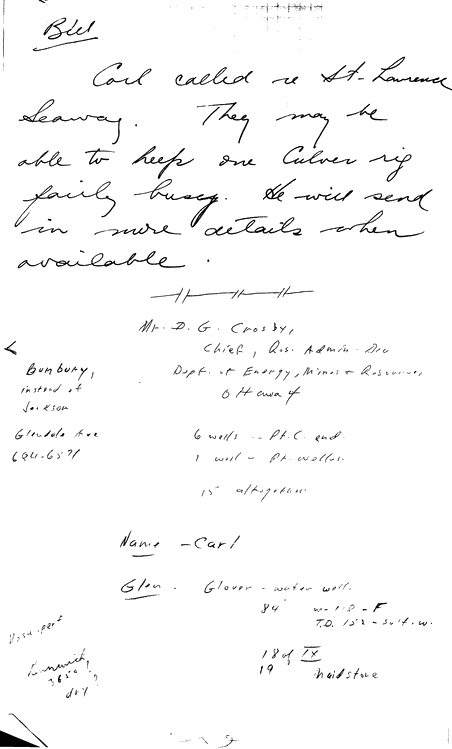 Bill
Carl called re St-Lawrence
Seaway. They may be
able to keep one Culver rig
fairly busy. He will send
in more details when
available.
Mr. D. G. Crosby,
Chief, Res. Admin. Div
Dept. of Energy, Mines & Resources,
Ottawa 4
Bunbury,
instead of
Jackson
Glendale Ave
6 wells - Pt. C. end.
1 well - Pt.
15 altogether
Name - Carl
Glen. Glover - water well.
84'
T.D. 152 - Sulf. w.
18 of IX
19 Maidstone
3650'
dry?